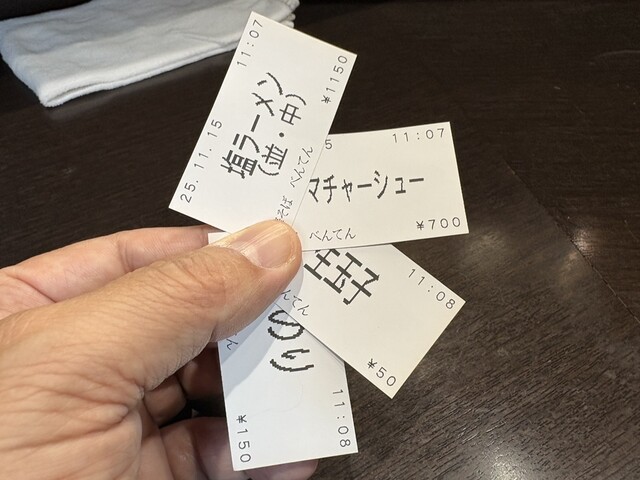 25.11.15 11:07
塩ラーメン
(並・中)
¥1150
べんてん
5 11:07
マチャーシュー
¥700
べんてん
11:08
¥50
んてん
のり
11:08
¥150
ん